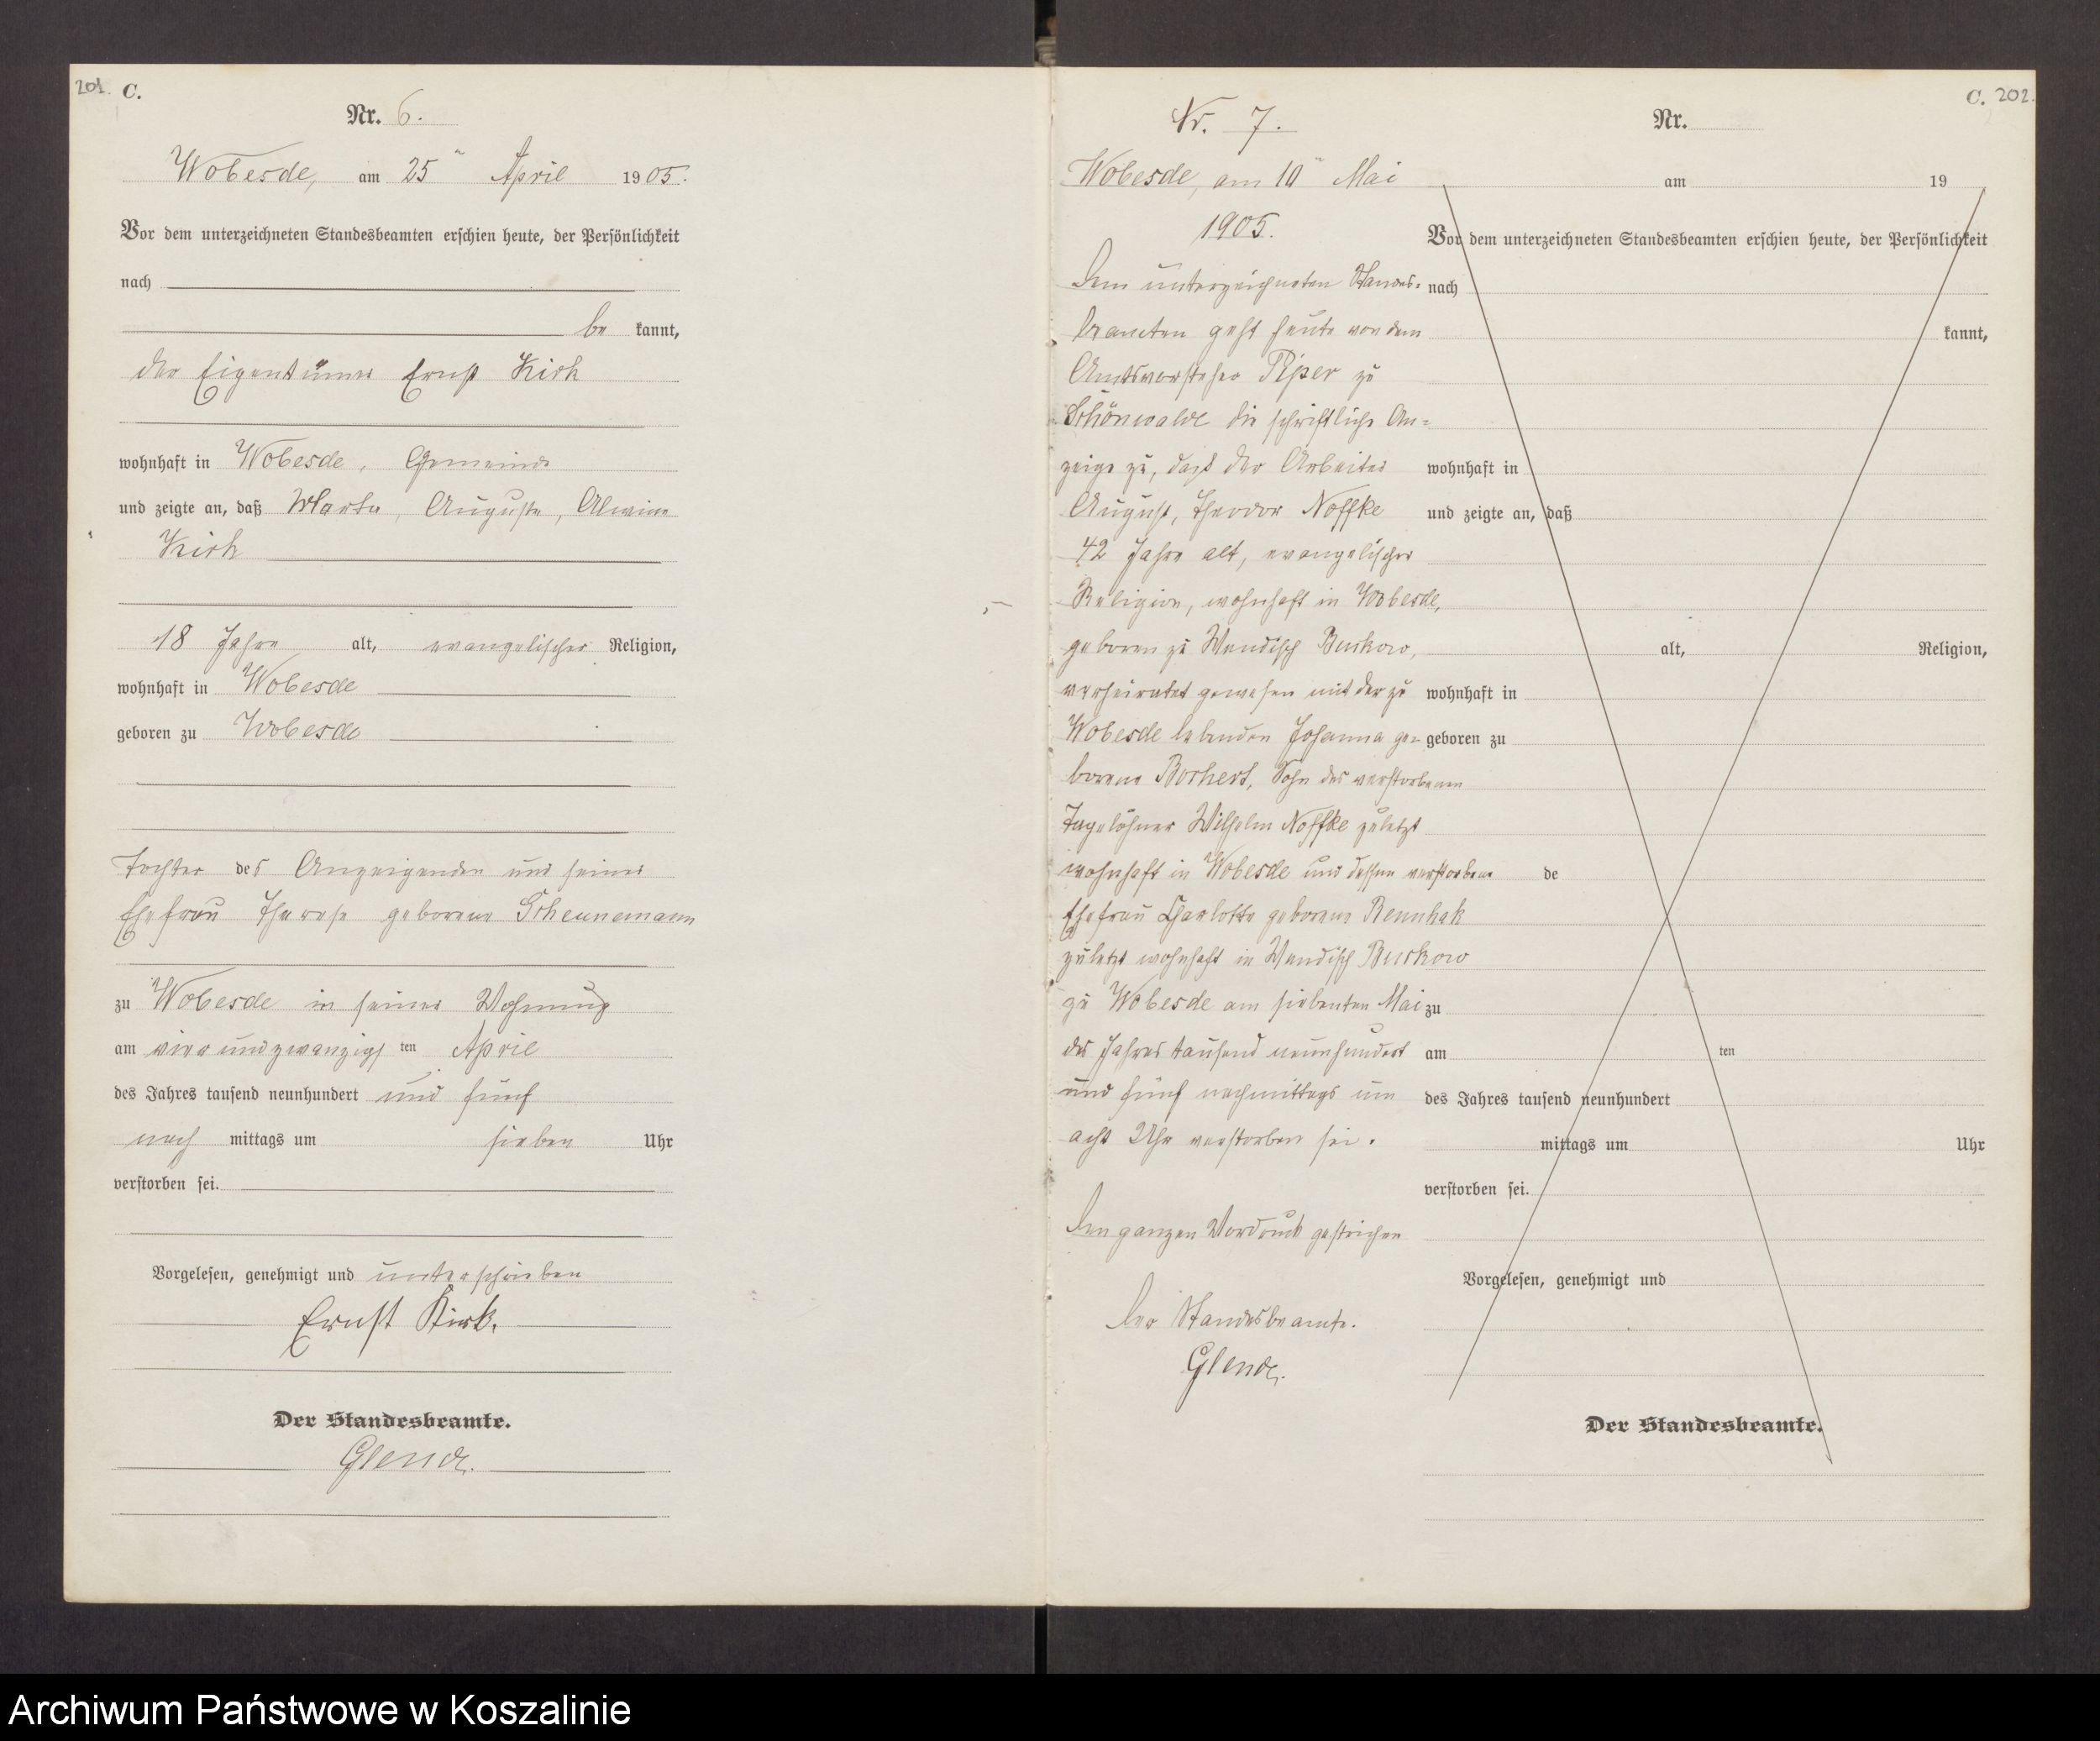 201. C.
Nr. 6.
Wobesde, am 25ⁿ April 1905.
Vor dem unterzeichneten Standesbeamten erschien heute, der Persönlichkeit
nach
be kannt,
der Eigentümer Ernst Kirk
wohnhaft in Wobesde, Gemeinde
und zeigte an, daß Marta, Auguste, Alwine
Kirk
18 Jahre alt, evangelischer Religion,
wohnhaft in Wobesde
geboren zu Wobesde
Tochter des Anzeigenden und seiner
Ehefrau Therese geborene Scheunemann
zu Wobesde in seiner Wohnung
am vierundzwanzigsten April
des Jahres tausend neunhundert und fünf
nach mittags um sieben Uhr
verstorben sei.
Vorgelesen, genehmigt und unterschrieben
Ernst Kirk.
Der Standesbeamte.
Glende.
C. 202.
Nr. 7.
Wobesde, am 10ⁿ Mai
1905.
Dem unterzeichneten Standes-
beamten geht heute von dem
Amtsvorsteher Piper zu
Schönwalde die schriftliche An-
zeige zu, daß der Arbeiter
August, Theodor Noffke
42 Jahre alt, evangelischer
Religion, wohnhaft in Wobesde,
geboren zu Wendisch Buckow,
verheiratet gewesen mit der zu
Wobesde lebenden Johanna ge-
borene Borchert, Sohn des verstorbenen
Tagelöhner Wilhelm Noffke zuletzt
wohnhaft in Wobesde und dessen verstorbene
Ehefrau Charlotte geborene Rennhak
zuletzt wohnhaft in Wendisch Buckow
zu Wobesde am siebenten Mai
des Jahres tausend neunhundert
und fünf nachmittags um
acht Uhr verstorben sei.
Den ganzen Vordruck gestrichen
Der Standesbeamte.
Glende.
Nr.
am 19
Vor dem unterzeichneten Standesbeamten erschien heute, der Persönlichkeit
nach
kannt,
wohnhaft in
und zeigte an, daß
alt, Religion,
wohnhaft in
geboren zu
de
zu
am ten
des Jahres tausend neunhundert
mittags um Uhr
verstorben sei.
Vorgelesen, genehmigt und
Der Standesbeamte.
Archiwum Państwowe w Koszalinie